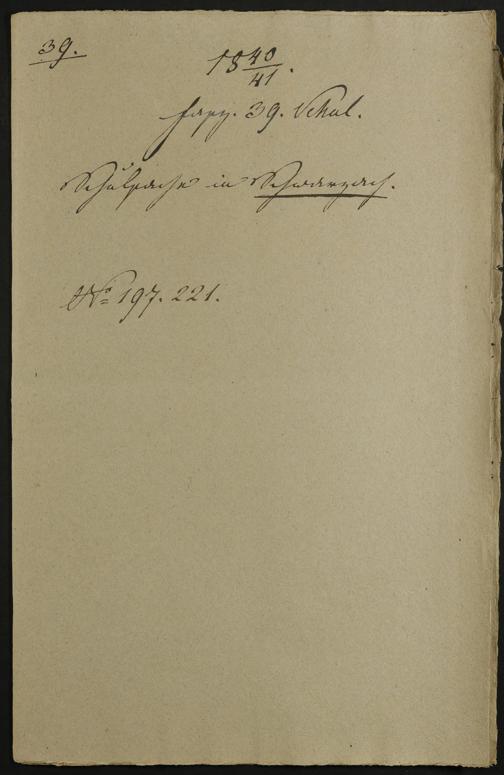 39.
18 40/41.
Fasz. 39. Schul.
Schulsache in Schwarzach.
No 197. 221.